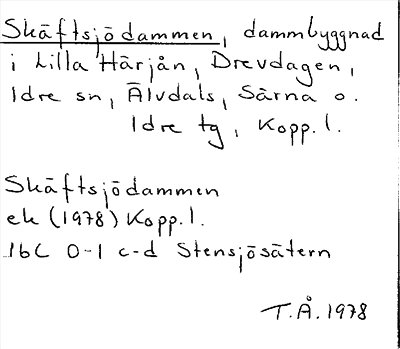 Skäftsjödammen, dammbyggnad
i Lilla Härjån, Drevdagen,
Idre sn, Älvdals, Särna o.
Idre tg, Kopp. l.
Skäftsjödammen
ek (1978) Kopp. l.
16C 0-1 c-d Stensjösätern
T.Å. 1978